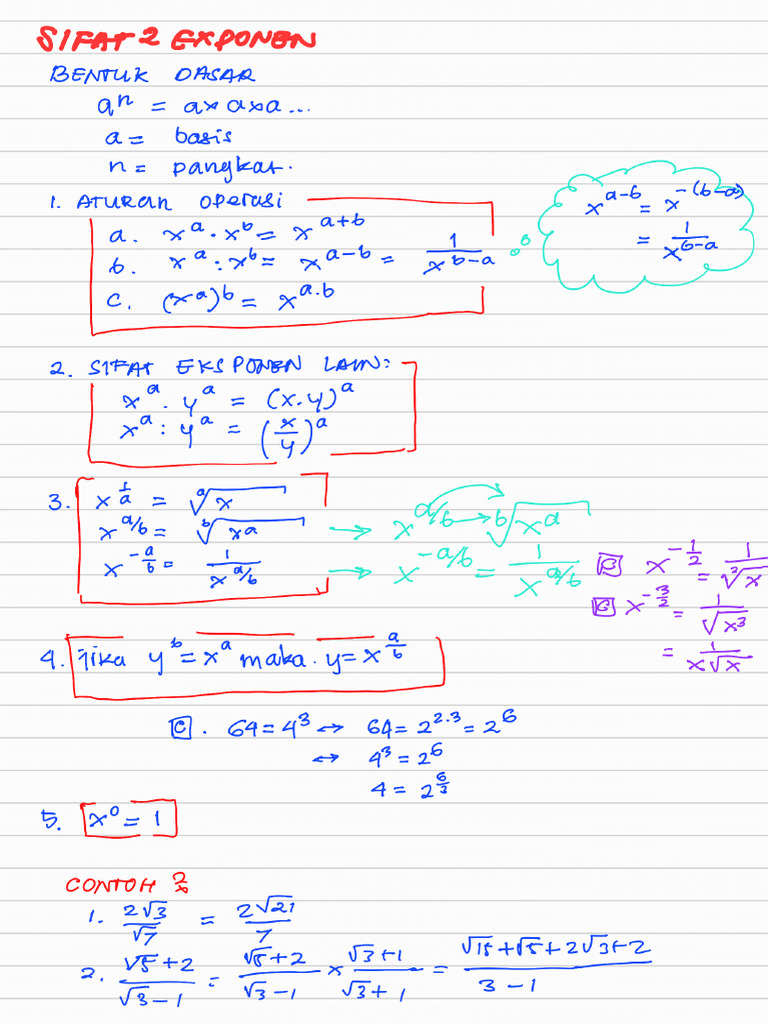 SIFAT2 EXPONEN
BENTUK DASAR
aⁿ = a×a×a...
a = basis
n = pangkat.
1. ATURAN OPERASI
a. xᵃ · xᵇ = xᵃ⁺ᵇ
b. xᵃ : xᵇ = xᵃ⁻ᵇ = 1/x^(b-a)
c. (xᵃ)ᵇ = x^(a.b)
x^(a-b) = x^(-(b-a))
= 1/x^(b-a)
2. SIFAT EKSPONEN LAIN:
xᵃ . yᵃ = (x.y)ᵃ
xᵃ : yᵃ = (x/y)ᵃ
3. x^(1/a) = ᵃ√x
x^(a/b) = ᵇ√xᵃ → x^(a/b) → ᵇ√xᵃ
x^(-a/b) = 1/x^(a/b) → x^(-a/b) = 1/x^(a/b)
C x^(-1/2) = 1/²√x
C x^(-3/2) = 1/√x³
= 1/x√x
4. Jika yᵇ = xᵃ maka. y = x^(a/b)
C. 64 = 4³ ↔ 64 = 2^(2.3) = 2⁶
↔ 4³ = 2⁶
4 = 2^(6/3)
5. x⁰ = 1
CONTOH2
1. 2√3/√7 = 2√21/7
2. (√5+2)/(√3-1) = (√5+2)/(√3-1) × (√3+1)/(√3+1) = (√15+√5+2√3+2)/(3-1)